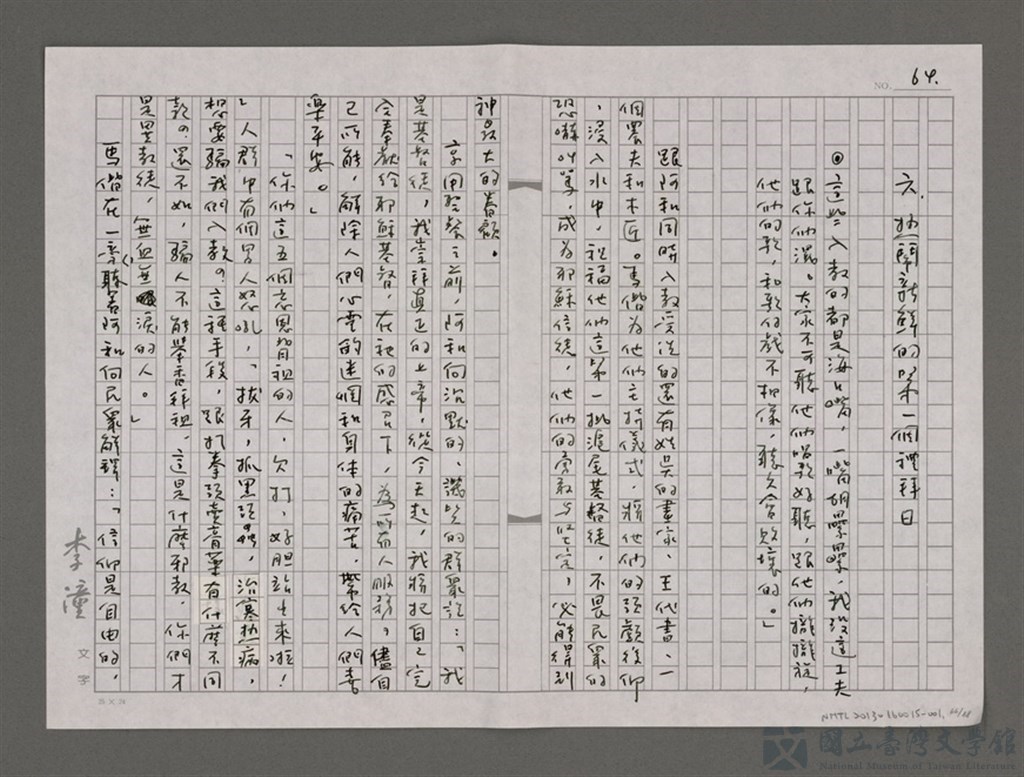 NO. 64.
六、熱鬧新鮮的第一個禮拜日
◎這些入教的都是海口嘴,一嘴胡纍纍,我沒這工夫
跟你們混。大家不可聽他們唱歌好聽,跟他們攏攏旋,
他們的歌,和歌仔戲不相像,聽久會敗壞的。」
跟阿和同時入教受洗的還有姓吳的畫家、王代書、一
個農夫和木匠。馬偕為他們主持儀式,將他們的頭顱後仰
,浸入水中,祝福他們這第一批滬尾基督徒,不畏民眾的
恐嚇叫罵,成為耶穌信徒,他們的勇敢与堅定,必能得到
神最大的眷顧。
享用聖餐之前,阿和向沉默的、譏笑的群眾說:「我
是基督徒,我崇拜真正的上帝,從今天起,我將把自己完
全奉獻給耶穌基督,在祂的感召下,為所有人服務,儘自
己所能,解除人們心靈的迷惘和身体的痛苦,帶給人們喜
樂平安。」
「你們這五個忘恩背祖的人,欠打,好胆站出來啦!
」人群中有個男人怒吼,「拔牙,抓黑頭蟲,治寒熱病,
想要騙我們入教?這種手段,跟打拳頭賣膏藥有什麼不同
款?還不如,騙人不能舉香拜祖,這是什麼邪教,你們才
是異教徒,無血無淚的人。」
馬偕在一旁聽著阿和向民眾解釋:「信仰是自由的,
李潼
文字
25 × 24
NMTL 2013-160015-001, 64/68
國立臺灣文學館
National Museum of Taiwan Literature